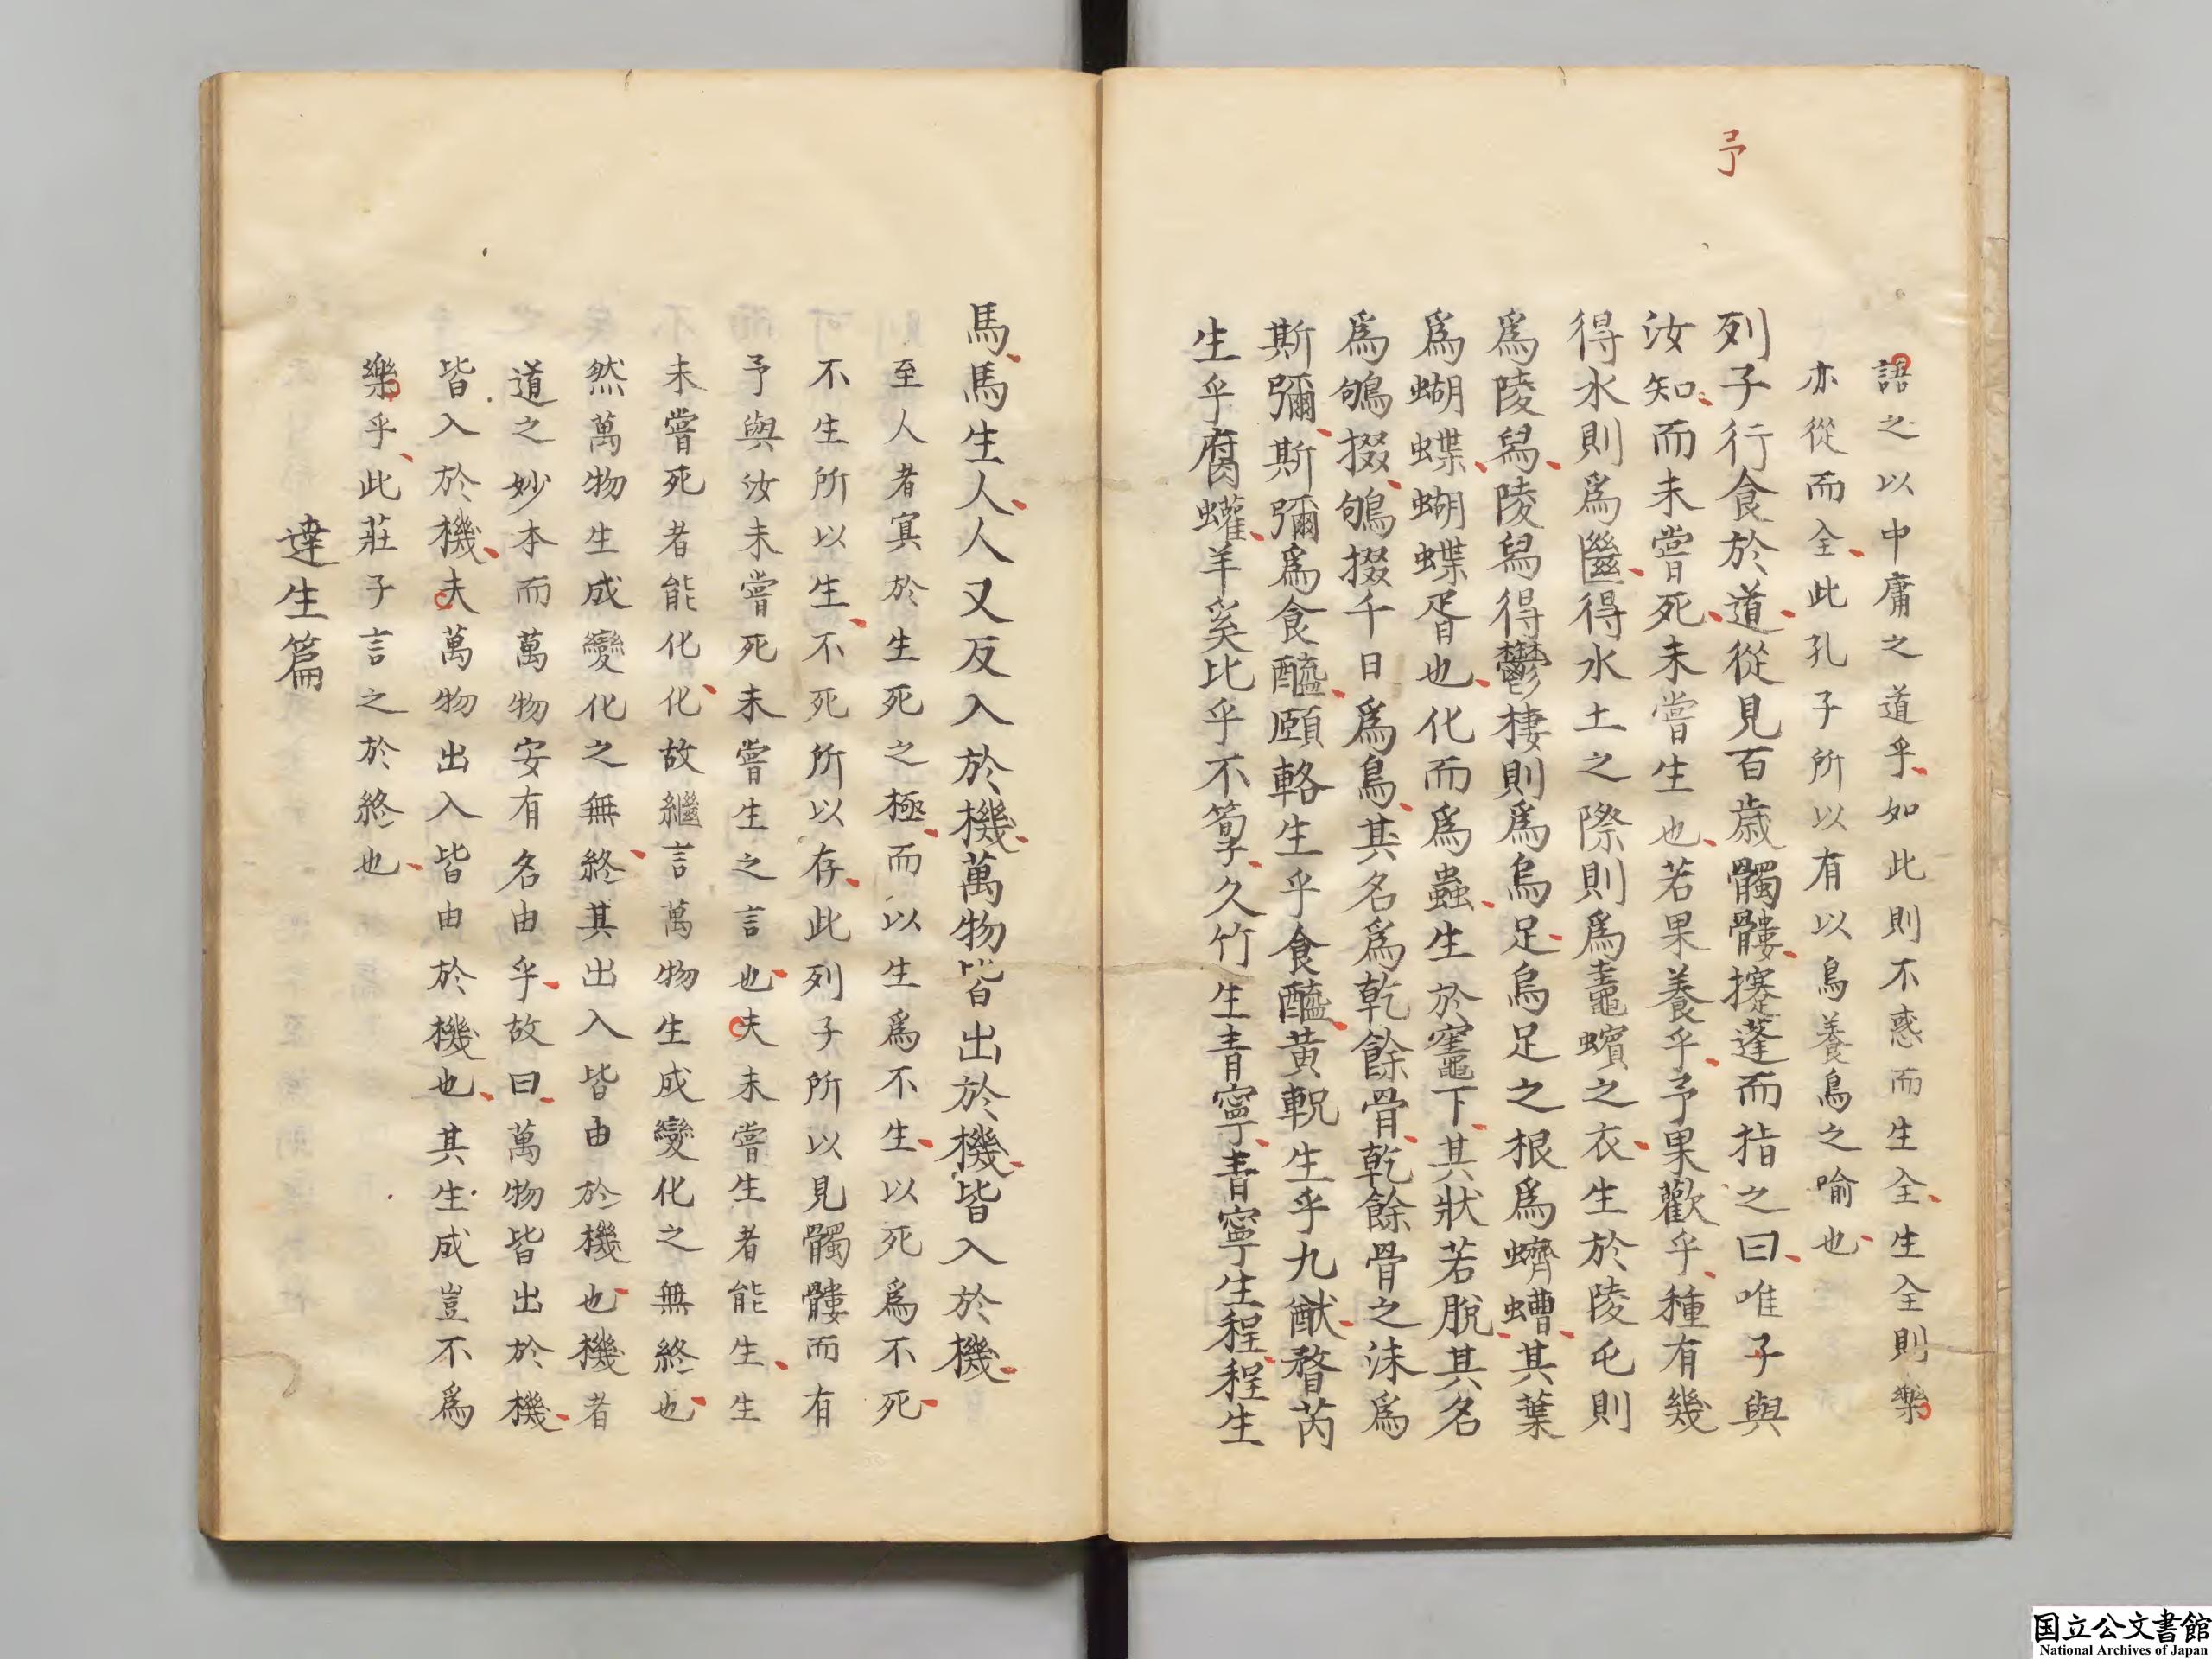 予
語之以中庸之道乎如此則不惑而生全生全則樂
亦從而全此孔子所以有以鳥養鳥之喻也
列子行食於道從見百歲髑髏攓蓬而指之曰唯子與
汝知而未嘗死未嘗生也若果養乎予果歡乎種有幾
得水則爲㡭得水土之際則爲鼃蠙之衣生於陵屯則
爲陵舄陵舄得鬱棲則爲烏足烏足之根爲蠐螬其葉
爲蝴蝶蝴蝶胥也化而爲蟲生於竈下其狀若脫其名
爲鴝掇鴝掇千日爲鳥其名爲乾餘骨乾餘骨之沬爲
斯彌斯彌爲食醯頤輅生乎食醯黃軦生乎九猷瞀芮
生乎腐蠸羊奚比乎不箰久竹生青寧青寧生程程生
馬馬生人人又反入於機萬物皆出於機皆入於機
至人者冥於生死之極而以生爲不生以死爲不死
不生所以生不死所以存此列子所以見髑髏而有
予與汝未嘗死未嘗生之言也夫未嘗生者能生生
未嘗死者能化化故繼言萬物生成變化之無終也
然萬物生成變化之無終其出入皆由於機也機者
道之妙本而萬物安有名由乎故曰萬物皆出於機
皆入於機夫萬物出入皆由於機也其生成豈不爲
樂乎此莊子言之於終也
達生篇
国立公文書館
National Archives of Japan